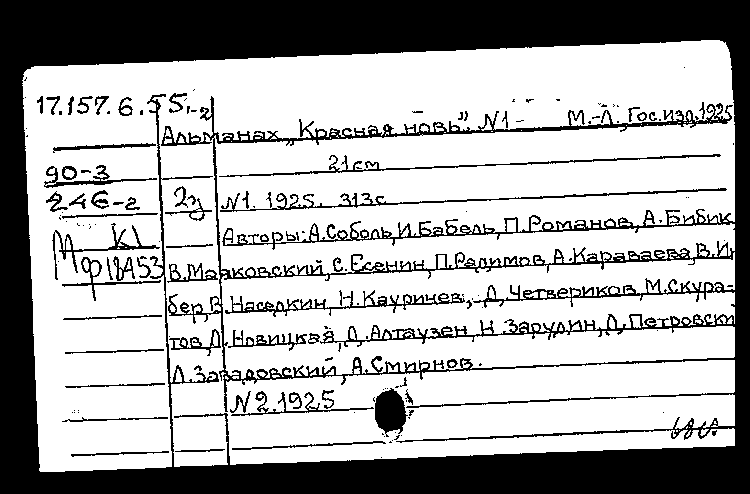 17.157.6.55.-2
Альманах „Красная новь". №1- М.-Л., Гос.изд, 1925
90-3 21см
246-2 2э №1. 1925. 313с
К1 Авторы: А.Соболь, И.Бабель, П.Романов, А.Бибик,
Мф 18453 В.Маяковский, С.Есенин, П.Радимов, А.Караваева, В.Ин
бер, В.Наседкин, Н.Кауричев, Д.Четвериков, М.Скура-
тов, Л.Новицкая, Д.Алтаузен, Н.Зарудин, Д.Петровски
Л.Завадовский, А.Смирнов.
№2.1925